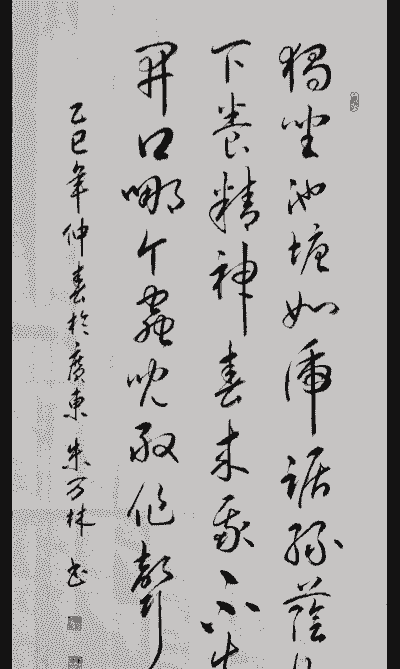 獨坐池塘如虎踞綠蔭
下養精神春來我不
開口哪个蟲兒敢作聲
乙巳年仲春於廣東朱万林書